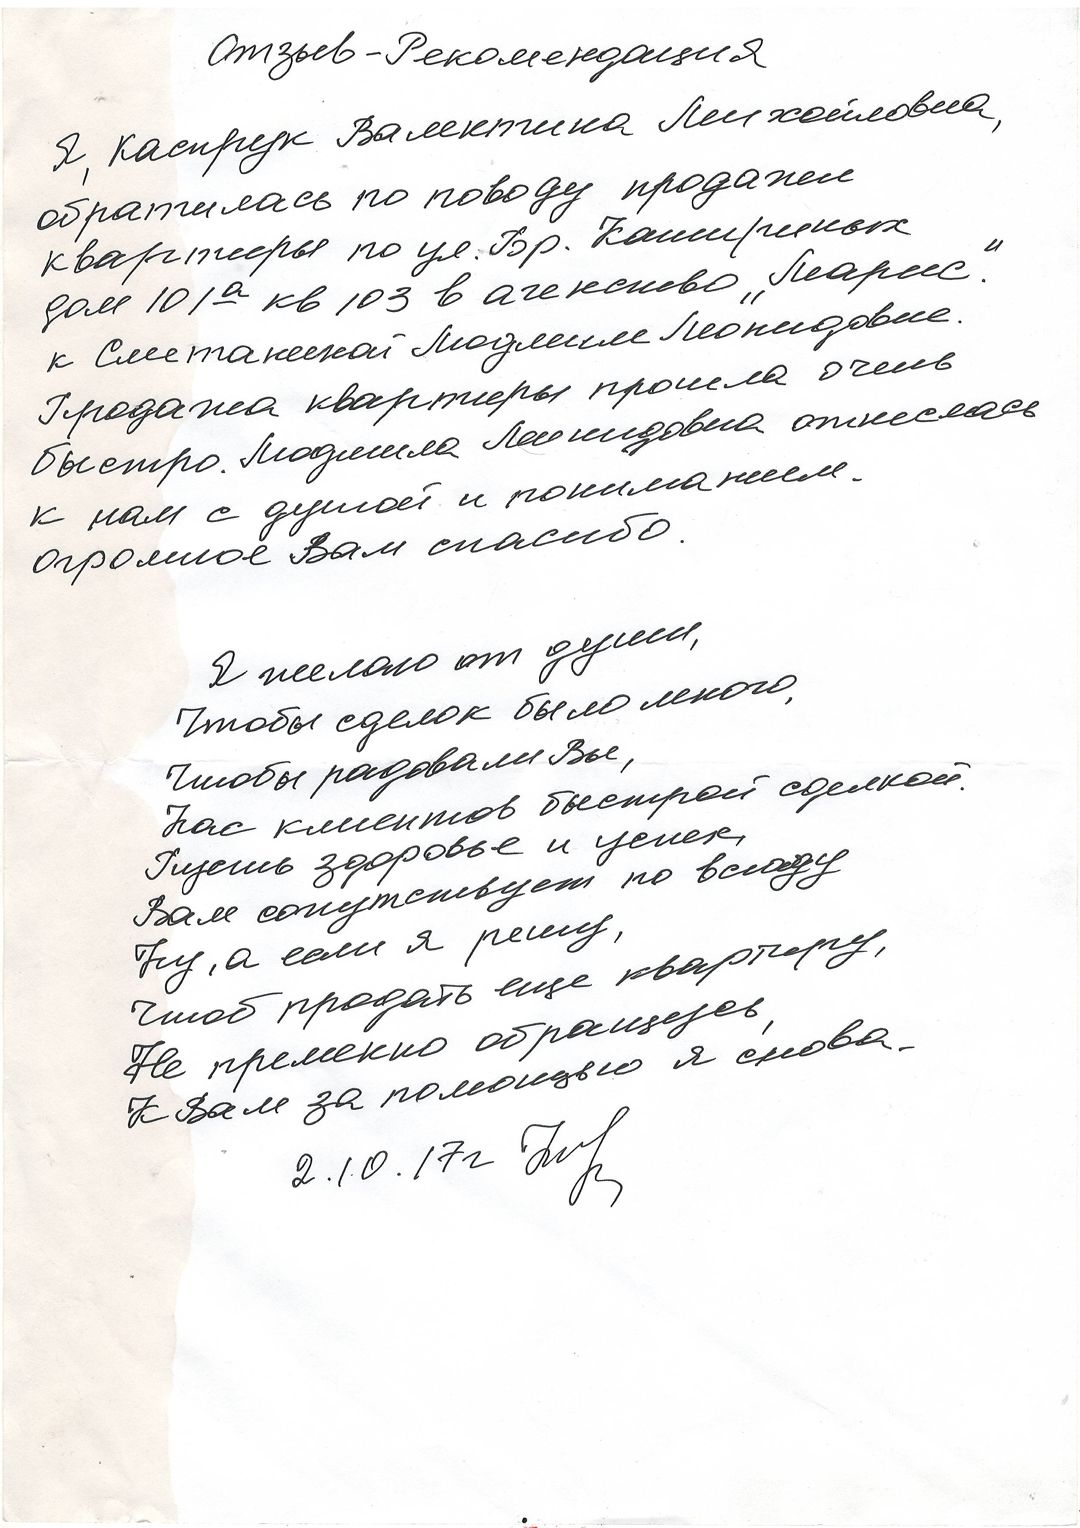 Отзыв-Рекомендация
Я, Каспрук Валентина Михайловна,
обратилась по поводу продажи
квартиры по ул. Бр. Кашириных
дом 101а кв 103 в агенство „Марис".
к Сметаниной Людмиле Леонидовне.
Продажа квартиры прошла очень
быстро. Людмила Леонидовна отнеслась
к нам с душой и пониманием.
огромное Вам спасибо.
Я желаю от души,
Чтобы сделок было много,
Чтобы радовали Вы,
Нас клиентов быстрой сделкой.
Пусть здоровье и успех,
Вам сопутствует по всюду
Ну, а если я решу,
Чтоб продать еще квартиру,
Не пременно обращусь,
К Вам за помощью я снова.
2.10.17г